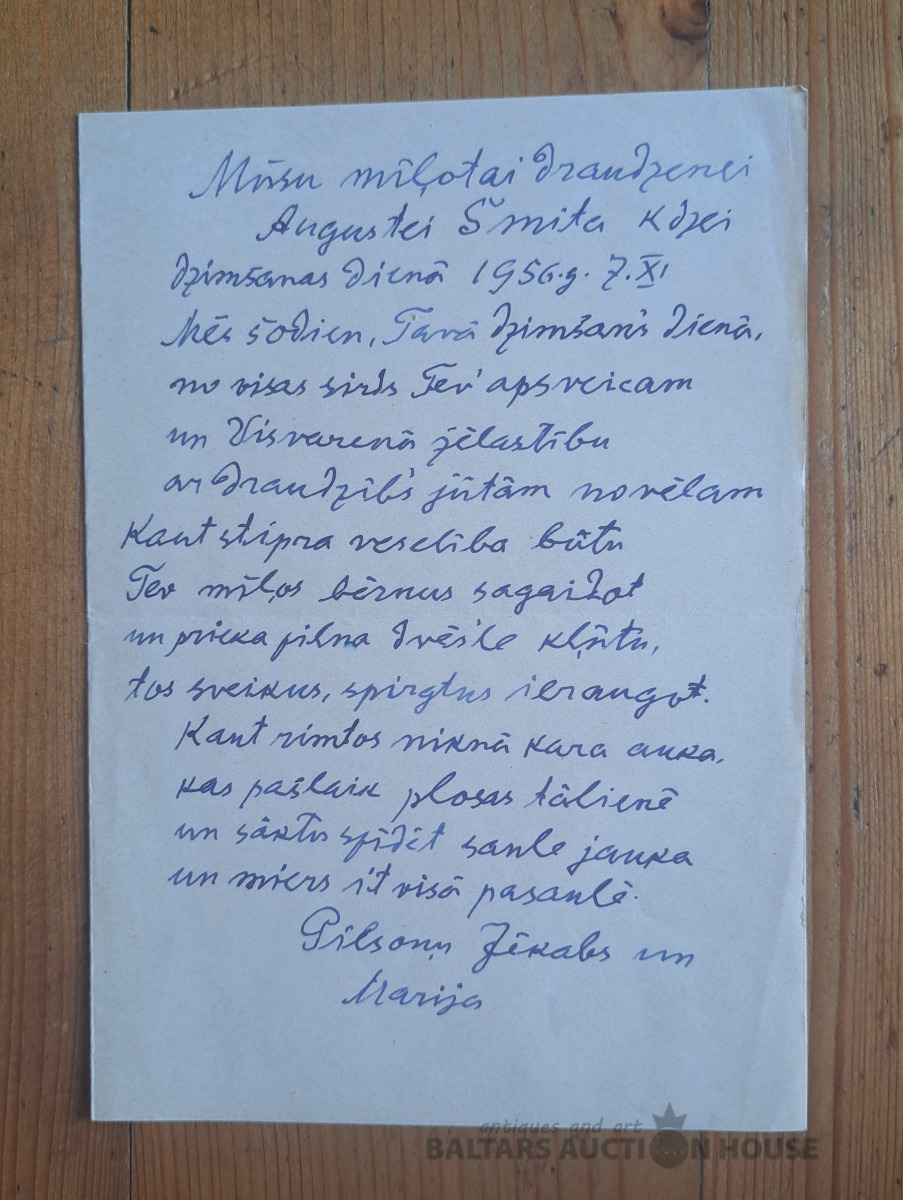 Mūsu mīļotai draudzenei
Augustei Šmita kdzei
dzimšanas dienā 1956.g. 7.XI
Mēs šodien, Tavā dzimšan's dienā,
no visas sirds Tev' apsveicam
un Visvarenā žēlastību
ar draudzīb's jūtām novēlam
Kaut stipra veselība būtu
Tev mīļos bērnus sagaidot
un prieka pilna dvēs'le kļūtu,
tos sveikus, spirgtus ieraugot.
Kaut rimtos niknā kara auka,
kas pašlaik plosas tālienē
un sāktu spīdēt saule jauka
un miers it visā pasaulē.
Pilsoņu Jēkabs un
Marija
antiques and art
BALTARS AUCTION HOUSE